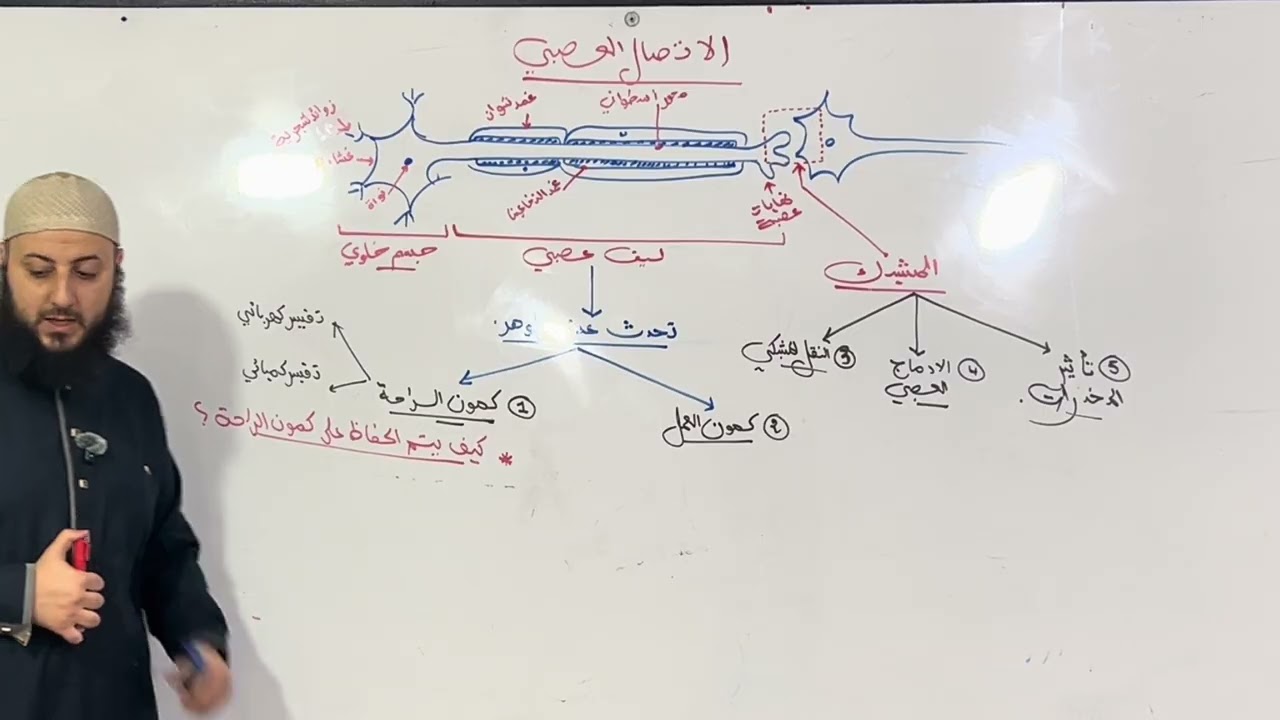 الاتصال العصبي
زوائد شجرية
غشاء
نواة
غمد شوان
محور اسطواني
غمد النخاعين
نهايات
عصبية
جسم خلوي
ليف عصبي
المشبك
تحدث
① كمون الراحة
تفسير كهربائي
تفسير كميائي
* كيف يتم الحفاظ على كمون الراحة ؟
② كمون العمل
③ النقل المشبكي
④ الادماج
العصبي
⑤ تأثير
المخدرات.